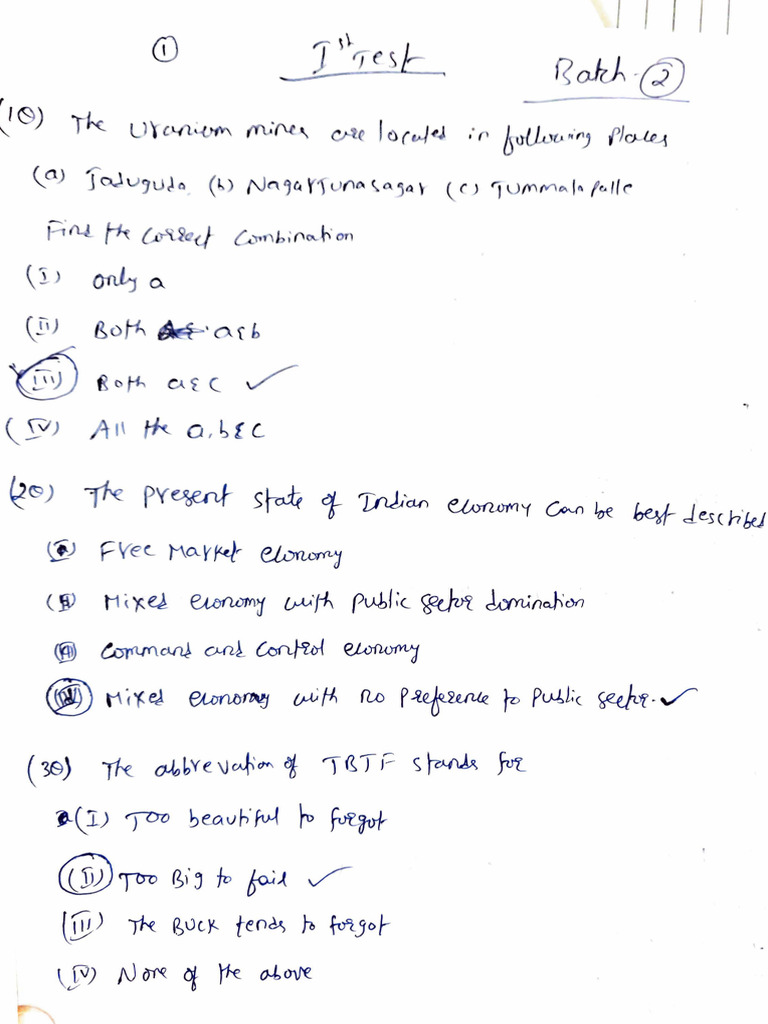 ①
Iˢᵗ Test
Batch - ②
(1Q) The Uranium mines are located in following places
(a) Jaduguda (b) NagarJunasagar (c) Tummalapalle
Find the correct combination
(I) only a
(II) Both a&b
(III) Both a&c ✓
(IV) All the a,b&c
(2Q) The present state of Indian economy can be best described
Free Market economy
Mixed economy with public sector domination
Command and control economy
Mixed economy with no preference to public sector. ✓
(3Q) The abbrevation of TBTF stands for
(I) Too beautiful to forgot
(II) Too Big to fail ✓
(III) The Buck tends to forgot
(IV) None of the above